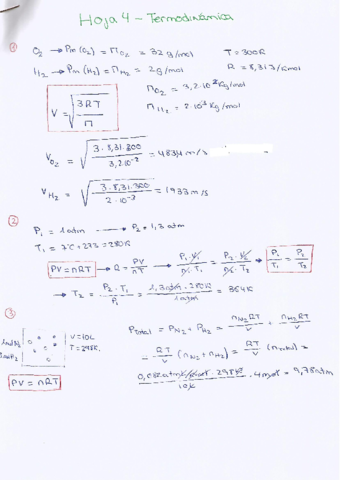 Hoja 4 - Termodinámica
① O₂ → Pm(O₂) = M_O₂ = 32 g/mol T = 300K
H₂ → Pm(H₂) = M_H₂ = 2 g/mol R = 8,31 J/Kmol
M_O₂ = 3,2·10⁻² Kg/mol
V = √(3RT/M) M_H₂ = 2·10⁻³ Kg/mol
V_O₂ = √(3·8,31·300 / 3,2·10⁻²) = 483,4 m/s
V_H₂ = √(3·8,31·300 / 2·10⁻³) = 1933 m/s
② P₁ = 1 atm → P₂ = 1,3 atm
T₁ = 7°C + 273 = 280K
PV = nRT → R = PV/nT → P₁·V₁/n₁·T₁ = P₂·V₂/n₂·T₂ → P₁/T₁ = P₂/T₂
→ T₂ = P₂·T₁/P₁ = 1,3 atm · 280K / 1 atm = 364K
③ V = 10L
T = 298K
Ptotal = P_N₂ + P_H₂ = n_N₂RT/V + n_H₂RT/V
= RT/V (n_N₂ + n_H₂) = RT/V (n total) =
PV = nRT
· 4mol = 9,78 atm